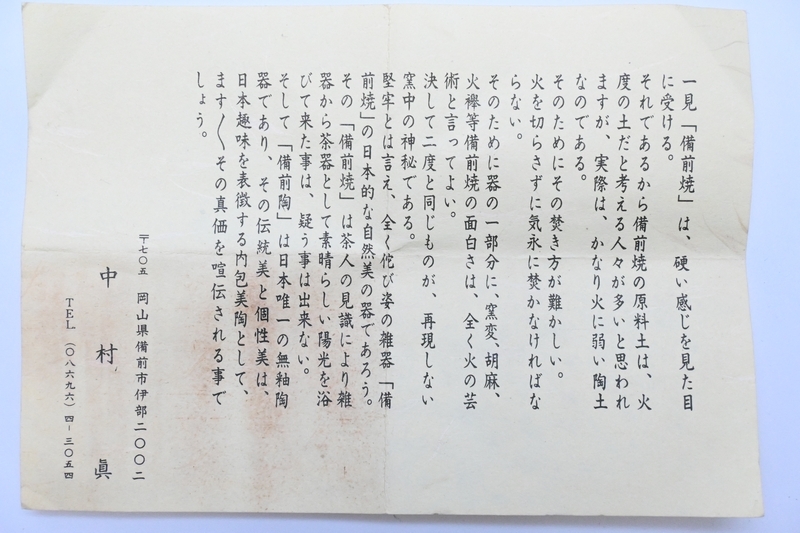 一見「備前焼」は、硬い感じを見た目
に受ける。
それであるから備前焼の原料土は、火
度の土だと考える人々が多いと思われ
ますが、実際は、かなり火に弱い陶土
なのである。
そのためにその焚き方が難かしい。
火を切らさずに気永に焚かなければな
らない。
そのために器の一部分に、窯変、胡麻、
火襷等備前焼の面白さは、全く火の芸
術と言ってよい。
決して二度と同じものが、再現しない
窯中の神秘である。
堅牢とは言え、全く侘び姿の雑器「備
前焼」の日本的な自然美の器であろう。
その「備前焼」は茶人の見識により雑
器から茶器として素晴らしい陽光を浴
びて来た事は、疑う事は出来ない。
そして「備前陶」は日本唯一の無釉陶
器であり、その伝統美と個性美は、
日本趣味を表徴する内包美陶として、
ます〱その真価を喧伝される事で
しょう。
〒七〇五 岡山県備前市伊部二〇〇二
中村 眞
TEL (〇八六九六)四-三〇五四